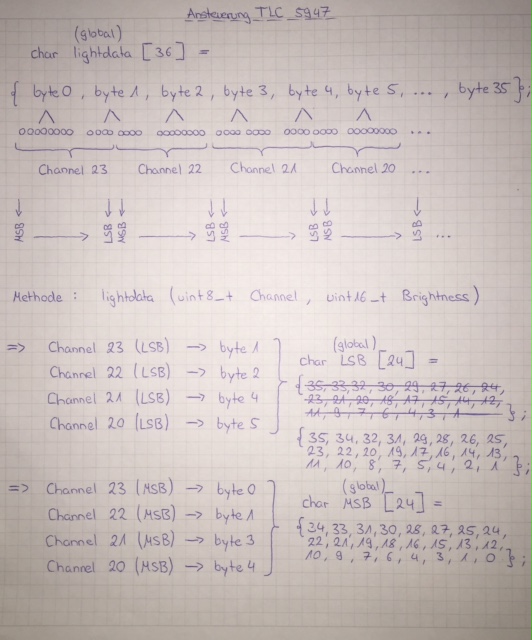 Ansteuerung TLC 5947
(global)
char lightdata [36] =
{ byte 0 , byte 1 , byte 2 , byte 3 , byte 4 , byte 5 , ... , byte 35 } ;
oooooooo oooo oooo oooooooo oooooooo oooo oooo oooooooo ...
Channel 23 Channel 22 Channel 21 Channel 20 ...
MSB → LSB MSB → LSB MSB → LSB MSB → LSB ...
Methode : lightdata (uint8_t Channel , uint16_t Brightness)
=> Channel 23 (LSB) → byte 1
Channel 22 (LSB) → byte 2
Channel 21 (LSB) → byte 4
Channel 20 (LSB) → byte 5
(global)
char LSB [24] =
{ 35, 33, 32, 30, 29, 27, 26, 24,
23, 21, 20, 18, 17, 15, 14, 12,
11, 9, 7, 6, 4, 3, 1 } ;
{ 35, 34, 32, 31, 29, 28, 26, 25,
23, 22, 20, 19, 17, 16, 14, 13,
11, 10, 8, 7, 5, 4, 2, 1 } ;
=> Channel 23 (MSB) → byte 0
Channel 22 (MSB) → byte 1
Channel 21 (MSB) → byte 3
Channel 20 (MSB) → byte 4
(global)
char MSB [24] =
{ 34, 33, 31, 30, 28, 27, 25, 24,
22, 21, 19, 18, 16, 15, 13, 12,
10, 9, 7, 6, 4, 3, 1, 0 } ;